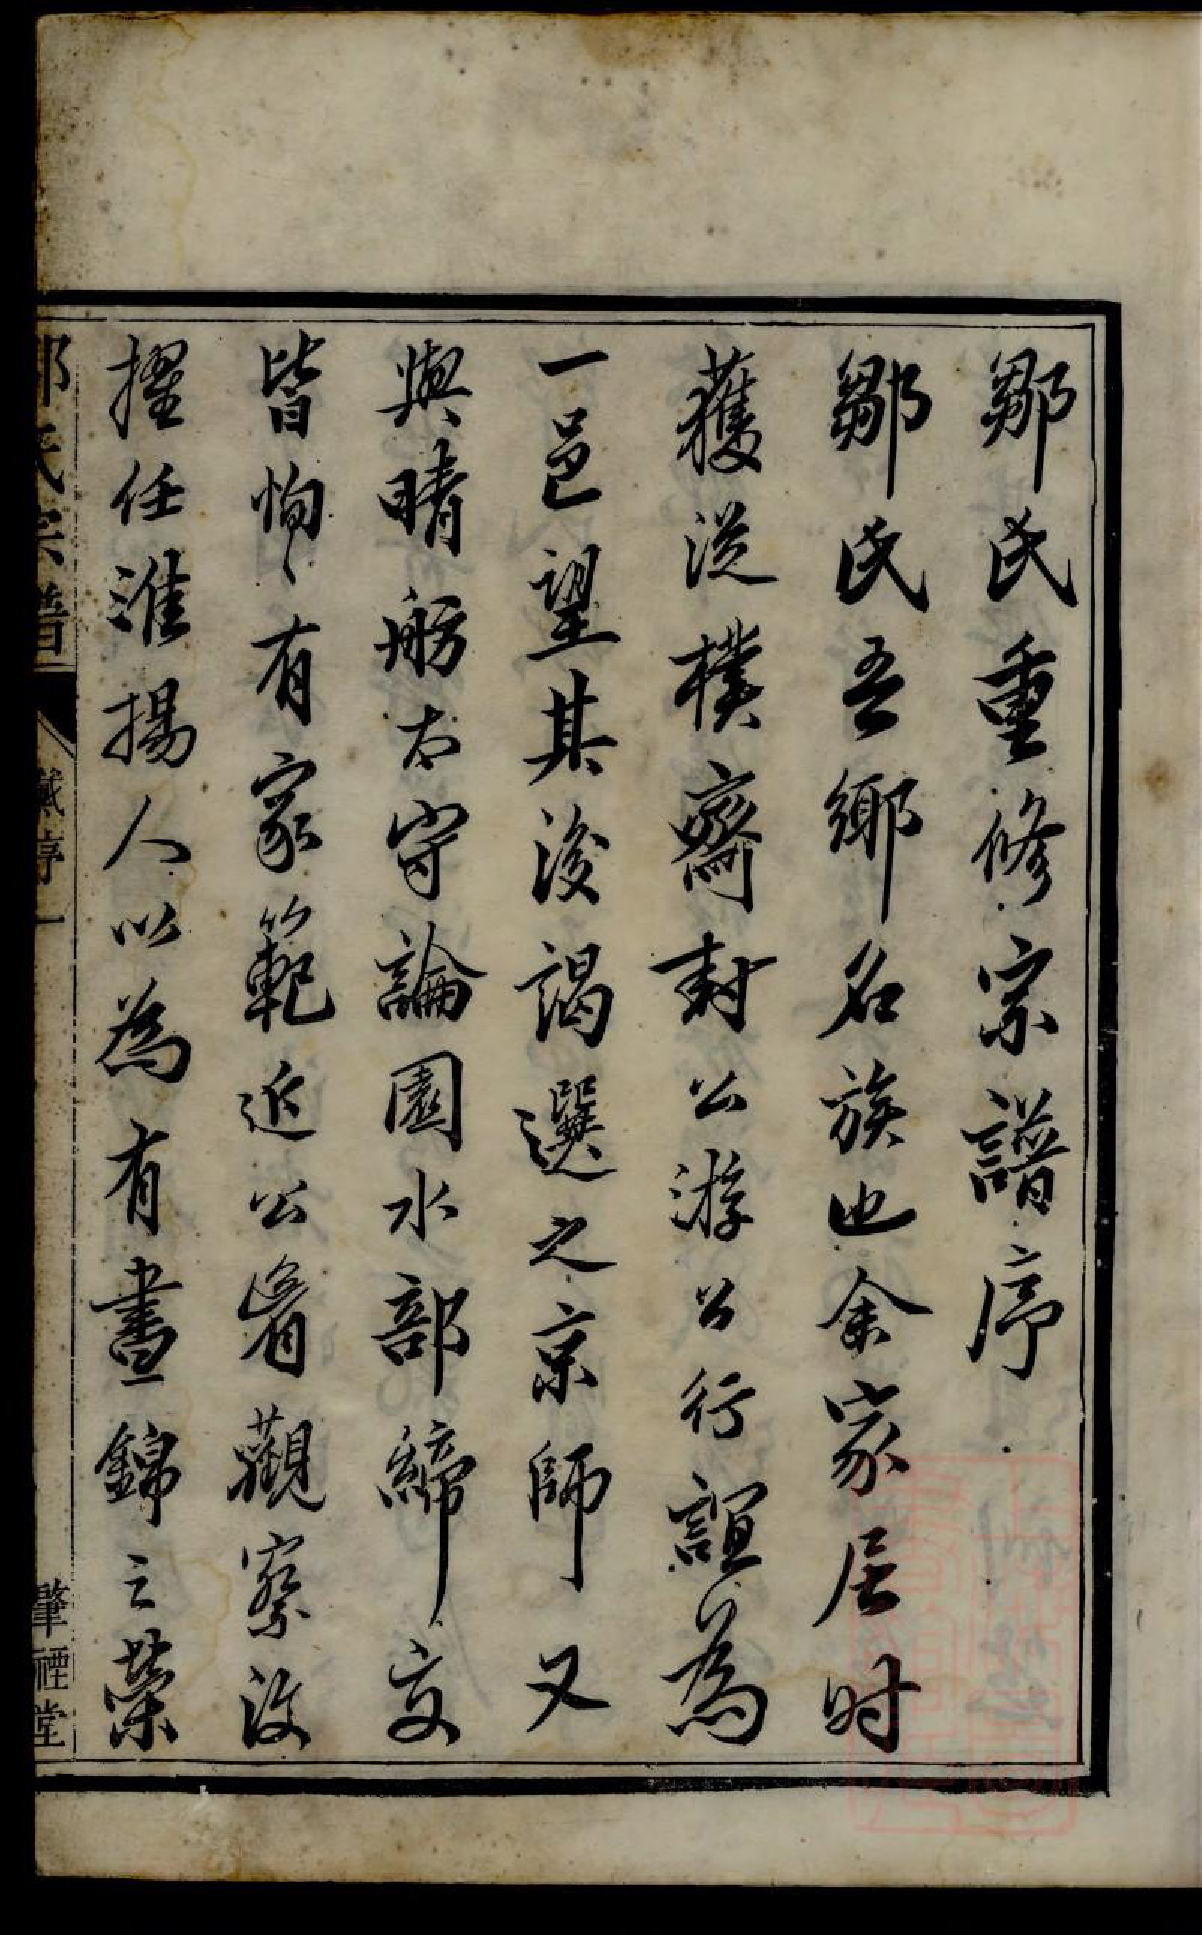 鄒氏重修宗譜序
鄒氏吾鄉名族也余家居时
獲從樸齋封公游公行誼為
一邑望其後謁選之京師又
與晴舫太守論園水部締交
皆恂〻有家範近公眷觀察汝
擢任淮揚人以為有晝錦之榮
鄒氏宗譜
序一
肇禋堂